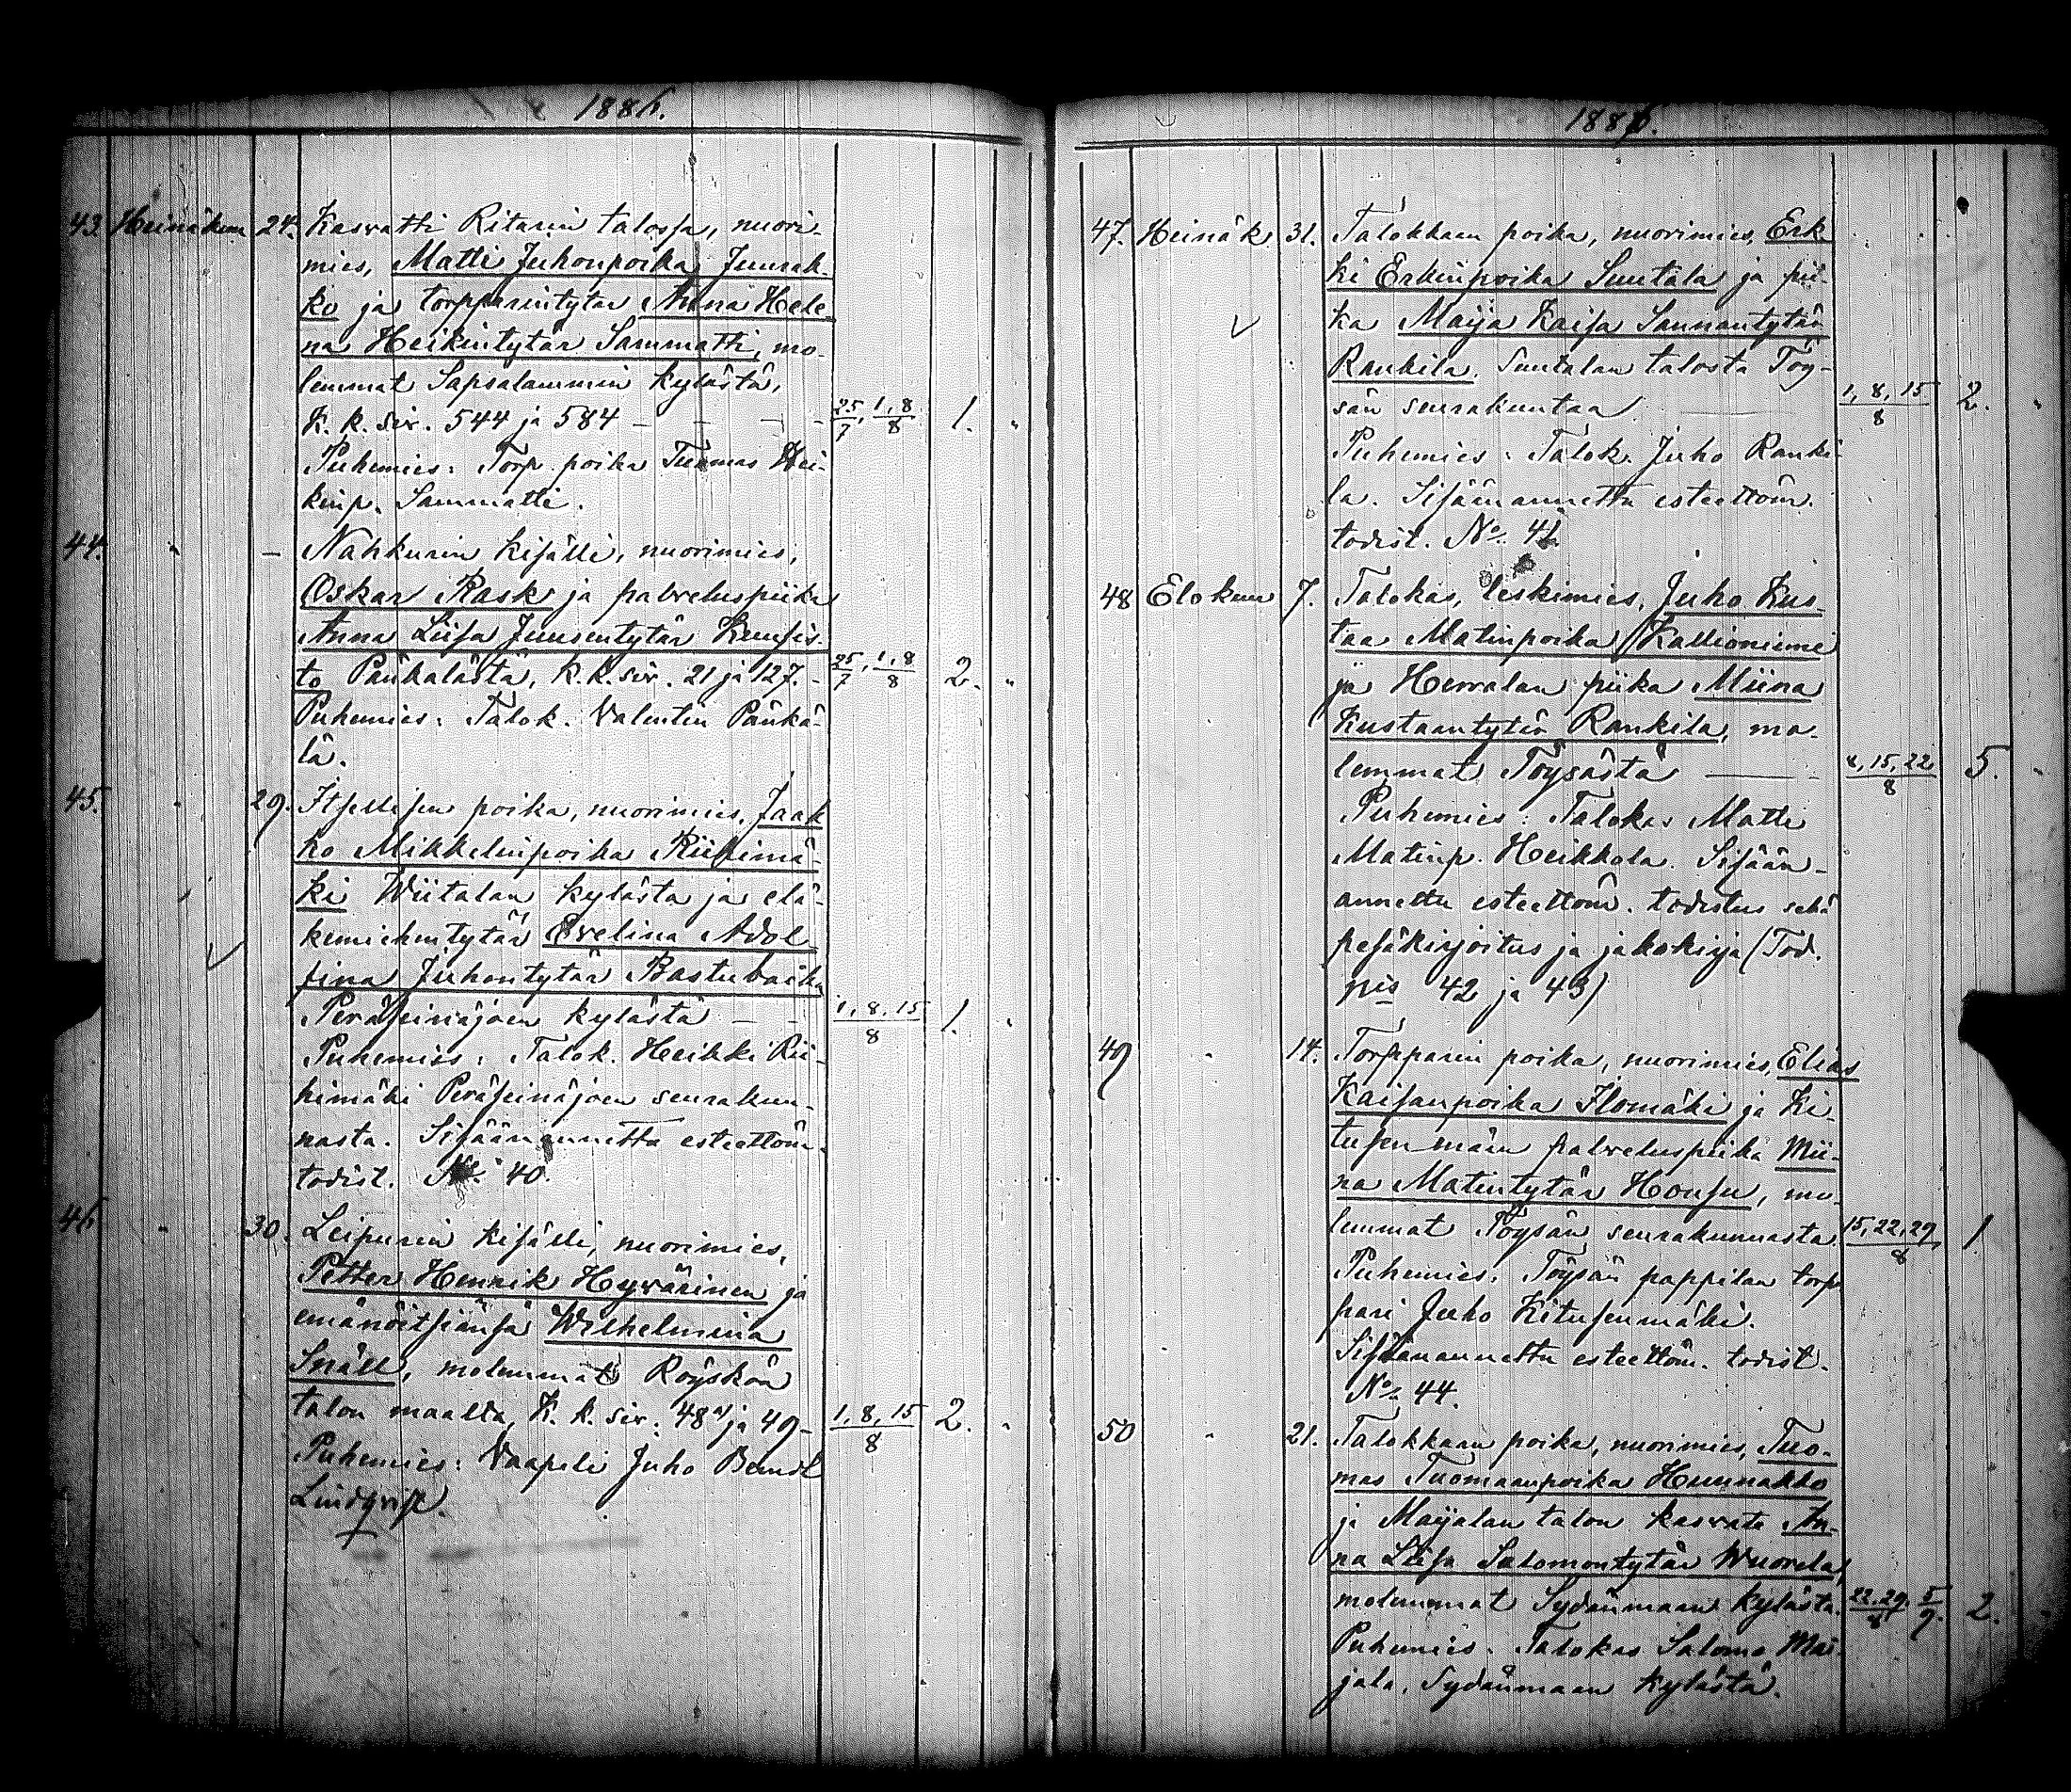 1886.
43. Heinäkuu 24. Kasvatti Ritarin talossa, nuori-
mies, Matti Juhonpoika Juurak-
ko ja torpparintytär Anna Hele-
na Heikintytär Sammatti, mo-
lemmat Sapsalammin kylästä,
K. k. siv. 544 ja 584 — 25/7, 1,8/8 1. "
Puhemies: Torp. poika Tuomas Hei-
kinp. Sammatti.
44. " — Nahkurin kisälli, nuorimies,
Oskar Rask ja palveluspiika
Anna Liisa Juusentytär Kuusis-
to Pänkälästä, K. k. siv. 21 ja 127. - 25/7, 1,8/8 2. "
Puhemies: Talok. Valentin Pänkä-
lä.
45. " 29. Itsellisen poika, nuorimies, Jaak
ko Mikkelinpoika Riihimä-
ki Wiitalan kylästä ja elä-
kemiehentytär Evelina Adol
fina Juhontytär Rastubacka
Peräseinäjoen kylästä — 1,8,15/8 1. "
Puhemies: Talok. Heikki Rii-
himäki Peräseinäjoen seurakun-
nasta. Sisäänannettu esteettöm.
todist. No. 40.
46 " 30. Leipurin kisälli, nuorimies,
Petter Henrik Hyvärinen ja
emännöitsiänsä Wilhelmina
Snäll, molemmat Röyskön
talon maalta, K. k. siv. 48 ja 49- 1,8,15/8 2. "
Puhemies: Vaapeli Juho Bernd.
Lindqvist.
1886.
47. Heinäk. 31. Talokkaan poika, nuorimies, Erk-
ki Erkinpoika Suutala ja pii-
ka Maija Kaisa Sannantytär
Rankila. Suutalan talosta Töy-
sän seurakuntaa — 1, 8, 15/8 2. "
Puhemies: Talok. Juho Ranki-
la. Sisäänannettu esteettöm.
todist. No. 41.
48 Elokuu 7. Talokas, leskimies, Juho Kus-
taa Matinpoika Kallioniemi
ja Herralan piika Miina
Kustaantytär Rankila, mo-
lemmat Töysästä — 8,15,22/8 5. "
Puhemies: Talokas Matti
Matinp. Heikkola. Sisään-
annettu esteettöm. todistus sekä
pesäkirjoitus ja jakokirja (Tod.
42 ja 43)
49 " 14. Torpparin poika, nuorimies, Elias
Kaisanpoika Ilomäki ja Ki-
tusenmäen palveluspiika Mii-
na Matintytär Housu, mo-
lemmat Töysän seurakunnasta. 15,22,29/8 1.
Puhemies: Töysän pappilan torp
pari Juho Kitusenmäki.
Sisäänannettu esteettöm. todist.
No. 44.
50 " 21. Talokkaan poika, nuorimies, Tuo-
mas Tuomaanpoika Hunnakko
ja Maijalan talon kasvate An-
na Liisa Salomontytär Wuorela,
molemmat Sydänmaan kylästä. 22,29/8, 5/9. 2.
Puhemies: Talokas Salomo Mai-
jala, Sydänmaan kylästä.